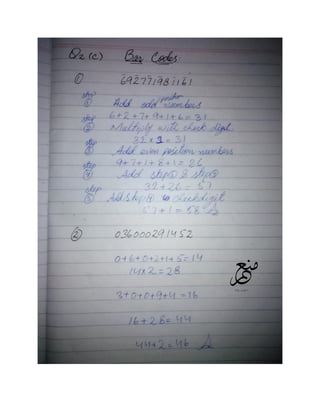 Q2 (c) Bar Codes:
① 692771981161
step ① Add odd numbers
6+2+7+9+1+6=31
step ② Multiply with check digit.
31 x 1 = 31
step ③ Add even position numbers
9+7+1+8+1=26
step ④ Add step② & step③
31+26 = 57
step ⑤ Add step④ to checkdigit
57+1 = 58
② 036000291452
0+6+0+2+1+5=14
14x2=28
3+0+0+9+4=16
16+28=44
44+2=46
منيع